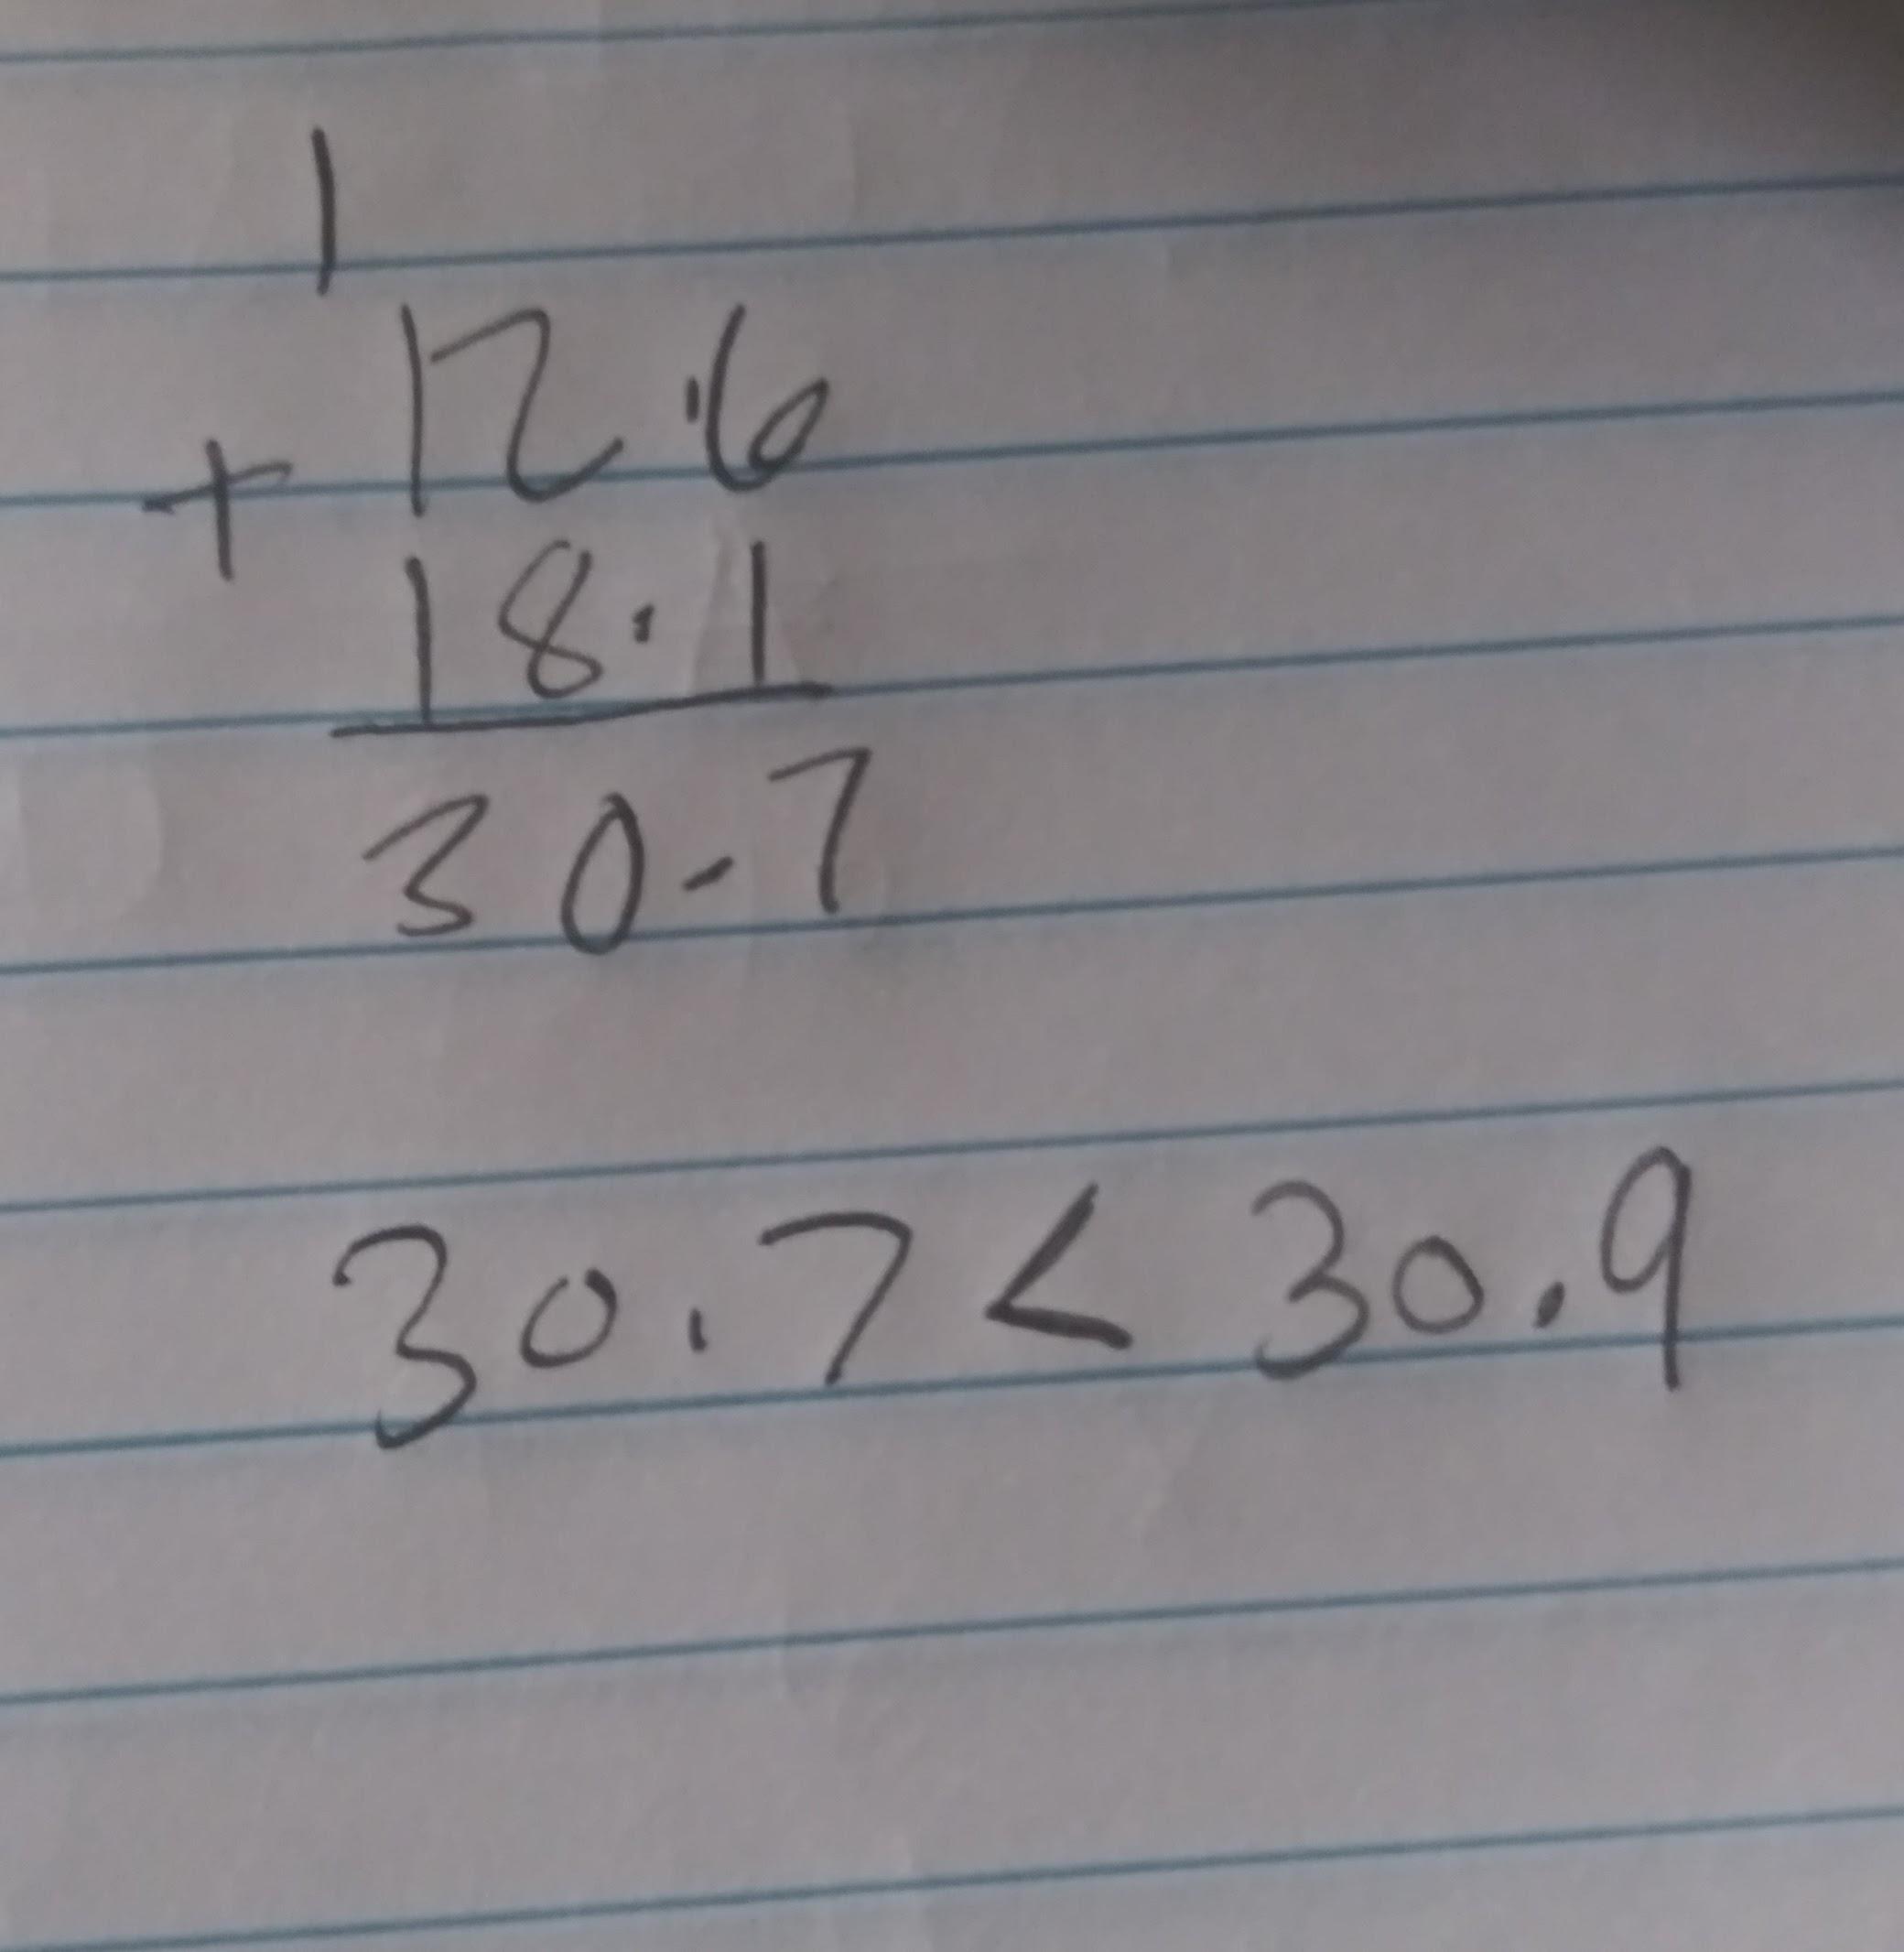 1
12.6
+
18.1
30.7
30.7 < 30.9